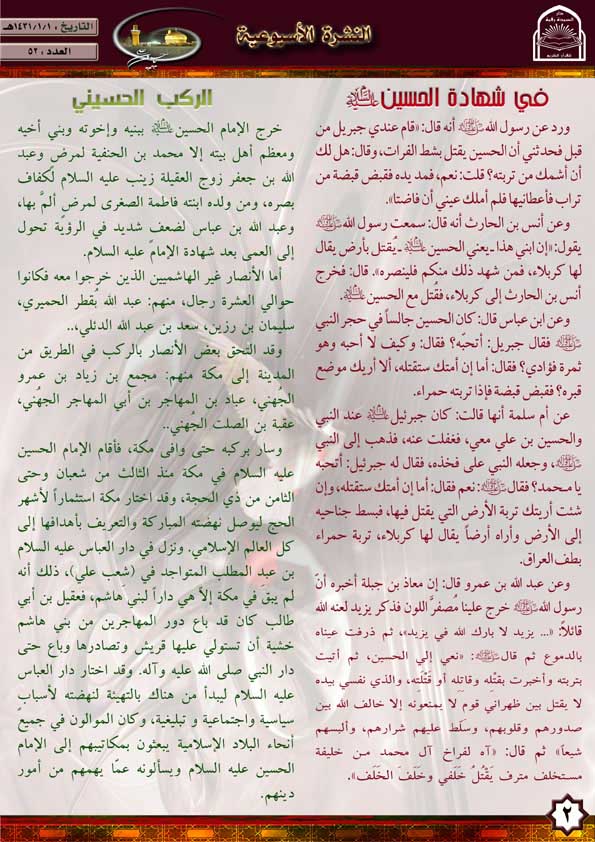 التاريخ : ١٤٣١/١/١هـ
العدد : ٥٢
النشرة الأسبوعية
في شهادة الحسين
ورد عن رسول الله ﷺ أنه قال: «قام عندي جبريل من
قبل فحدثني أن الحسين يقتل بشط الفرات، وقال: هل لك
أن أشمك من تربته؟ قلت: نعم، فمد يده فقبض قبضة من
تراب فأعطانيها فلم أملك عيني أن فاضتا».
وعن أنس بن الحارث أنه قال: سمعت رسول الله ﷺ
يقول: «إن ابني هذا ـ يعني الحسين ـ يُقتل بأرض يقال
لها كربلاء، فمن شهد ذلك منكم فلينصره». قال: فخرج
أنس بن الحارث إلى كربلاء، فقُتل مع الحسين.
وعن ابن عباس قال: كان الحسين جالساً في حجر النبي
ﷺ فقال جبريل: أتحبّه؟ فقال: وكيف لا أحبه وهو
ثمرة فؤادي؟ فقال: أما إن أمتك ستقتله، ألا أريك موضع
قبره؟ فقبض قبضة فإذا تربته حمراء.
عن أم سلمة أنها قالت: كان جبرئيل عند النبي
والحسين بن علي معي، فغفلت عنه، فذهب إلى النبي
ﷺ، وجعله النبي على فخذه، فقال له جبرئيل: أتحبه
يا محمد؟ فقال ﷺ: نعم فقال: أما إن أمتك ستقتله، وإن
شئت أريتك تربة الأرض التي يقتل فيها، فبسط جناحيه
إلى الأرض وأراه أرضاً يقال لها كربلاء، تربة حمراء
بطف العراق.
وعن عبد الله بن عمرو قال: إن معاذ بن جبلة أخبره أنّ
رسول الله ﷺ خرج علينا مُصفرَّ اللون فذكر يزيد لعنه الله
قائلاً «... يزيد لا بارك الله في يزيد»، ثم ذرفت عيناه
بالدموع ثم قال ﷺ: «نعي إلي الحسين، ثم أتيت
بتربته وأخبرت بقتْله وقاتِله أو قَتَلَته، والذي نفسي بيده
لا يقتل بين ظهراني قوم لا يمنعونه إلا خالف الله بين
صدورهم وقلوبهم، وسلّط عليهم شرارهم، وألبسهم
شيعاً» ثم قال: «آه لفراخ آل محمد من خليفة
مستخلف مترف يَقْتُلُ خَلَفي وخَلَفَ الخَلَف».
الركب الحسيني
خرج الإمام الحسين ببنيه وإخوته وبني أخيه
ومعظم أهل بيته إلا محمد بن الحنفية لمرض وعبد
الله بن جعفر زوج العقيلة زينب عليه السلام لكفاف
بصره، ومن ولده ابنته فاطمة الصغرى لمرض ألمَّ بها،
وعبد الله بن عباس لضعف شديد في الرؤية تحول
إلى العمى بعد شهادة الإمام عليه السلام.
أما الأنصار غير الهاشميين الذين خرجوا معه فكانوا
حوالي العشرة رجال، منهم: عبد الله بُقطر الحميري،
سليمان بن رزين، سعد بن عبد الله الدئلي،..
وقد التحق بعض الأنصار بالركب في الطريق من
المدينة إلى مكة منهم: مجمع بن زياد بن عمرو
الجُهني، عباد بن المهاجر بن أبي المهاجر الجهني،
عقبة بن الصلت الجُهني..
وسار بركبه حتى وافى مكة، فأقام الإمام الحسين
عليه السلام في مكة منذ الثالث من شعبان وحتى
الثامن من ذي الحجة، وقد اختار مكة استثماراً لأشهر
الحج ليوصل نهضته المباركة والتعريف بأهدافها إلى
كل العالم الإسلامي. ونزل في دار العباس عليه السلام
بن عبد المطلب المتواجد في (شعب علي)، ذلك أنه
لم يبق في مكة إلاّ هي داراً لبني هاشم، فعقيل بن أبي
طالب كان قد باع دور المهاجرين من بني هاشم
خشية أن تستولي عليها قريش وتصادرها وباع حتى
دار النبي صلى الله عليه وآله. وقد اختار دار العباس
عليه السلام ليبدأ من هناك بالتهيئة لنهضته لأسبابٍ
سياسية واجتماعية و تبليغية، وكان الموالون في جميع
أنحاء البلاد الإسلامية يبعثون بمكاتيبهم إلى الإمام
الحسين عليه السلام ويسألونه عمّا يهمهم من أمور
دينهم.
٢